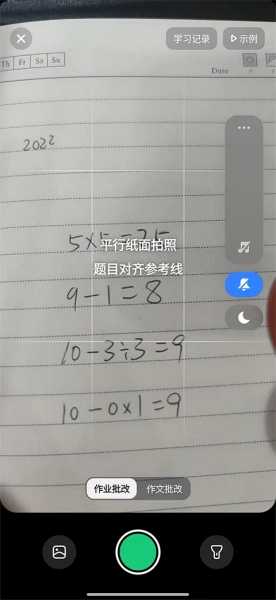 学习记录
示例
Th Fr Sa Su
Date
2022
5×5=25
平行纸面拍照
题目对齐参考线
9-1=8
10-3÷3=9
10-0×1=9
作业批改 作文批改